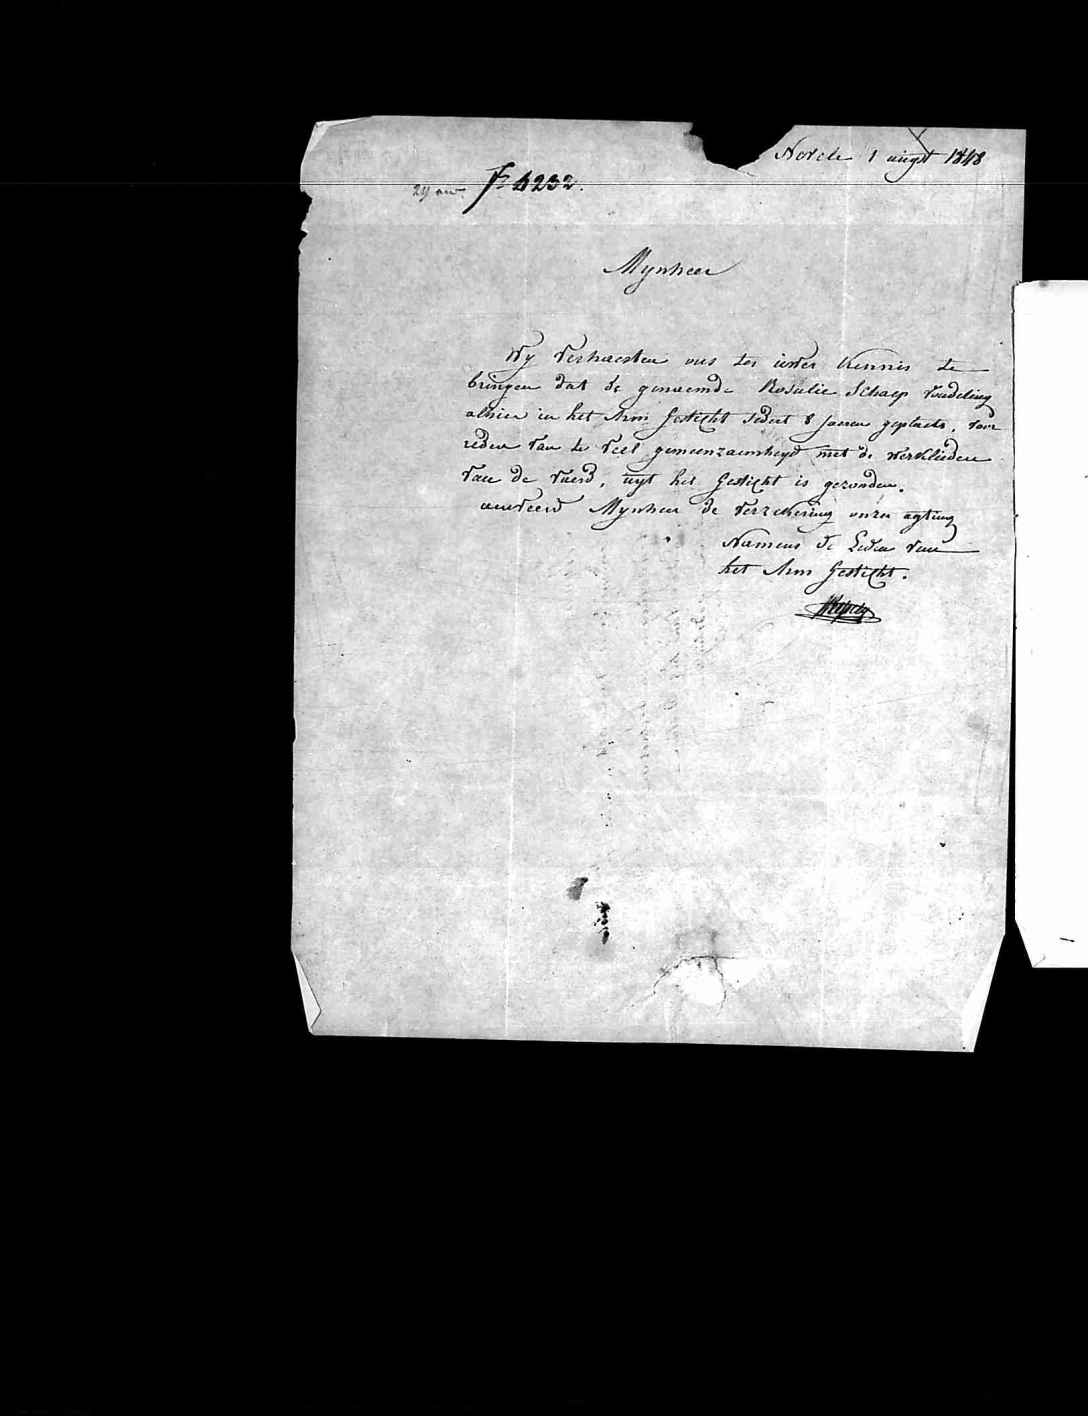 Nevele 1 augst 1848
F° 4232.
Mynheer
Wy verhaesten ons ter uwer kennis te
bringen dat de genaemde Rosalie Schaep vondeling
alhier in het Arm Gesticht sedert 8 jaren geplaets, voor
reden van te veel gemeenzaemheyd met de werklieden
van de vaerd, uyt het Gesticht is gezonden.
aenveerd Mynheer de verzekering onzer agting
Namens de Leden van
het Arm Gesticht.